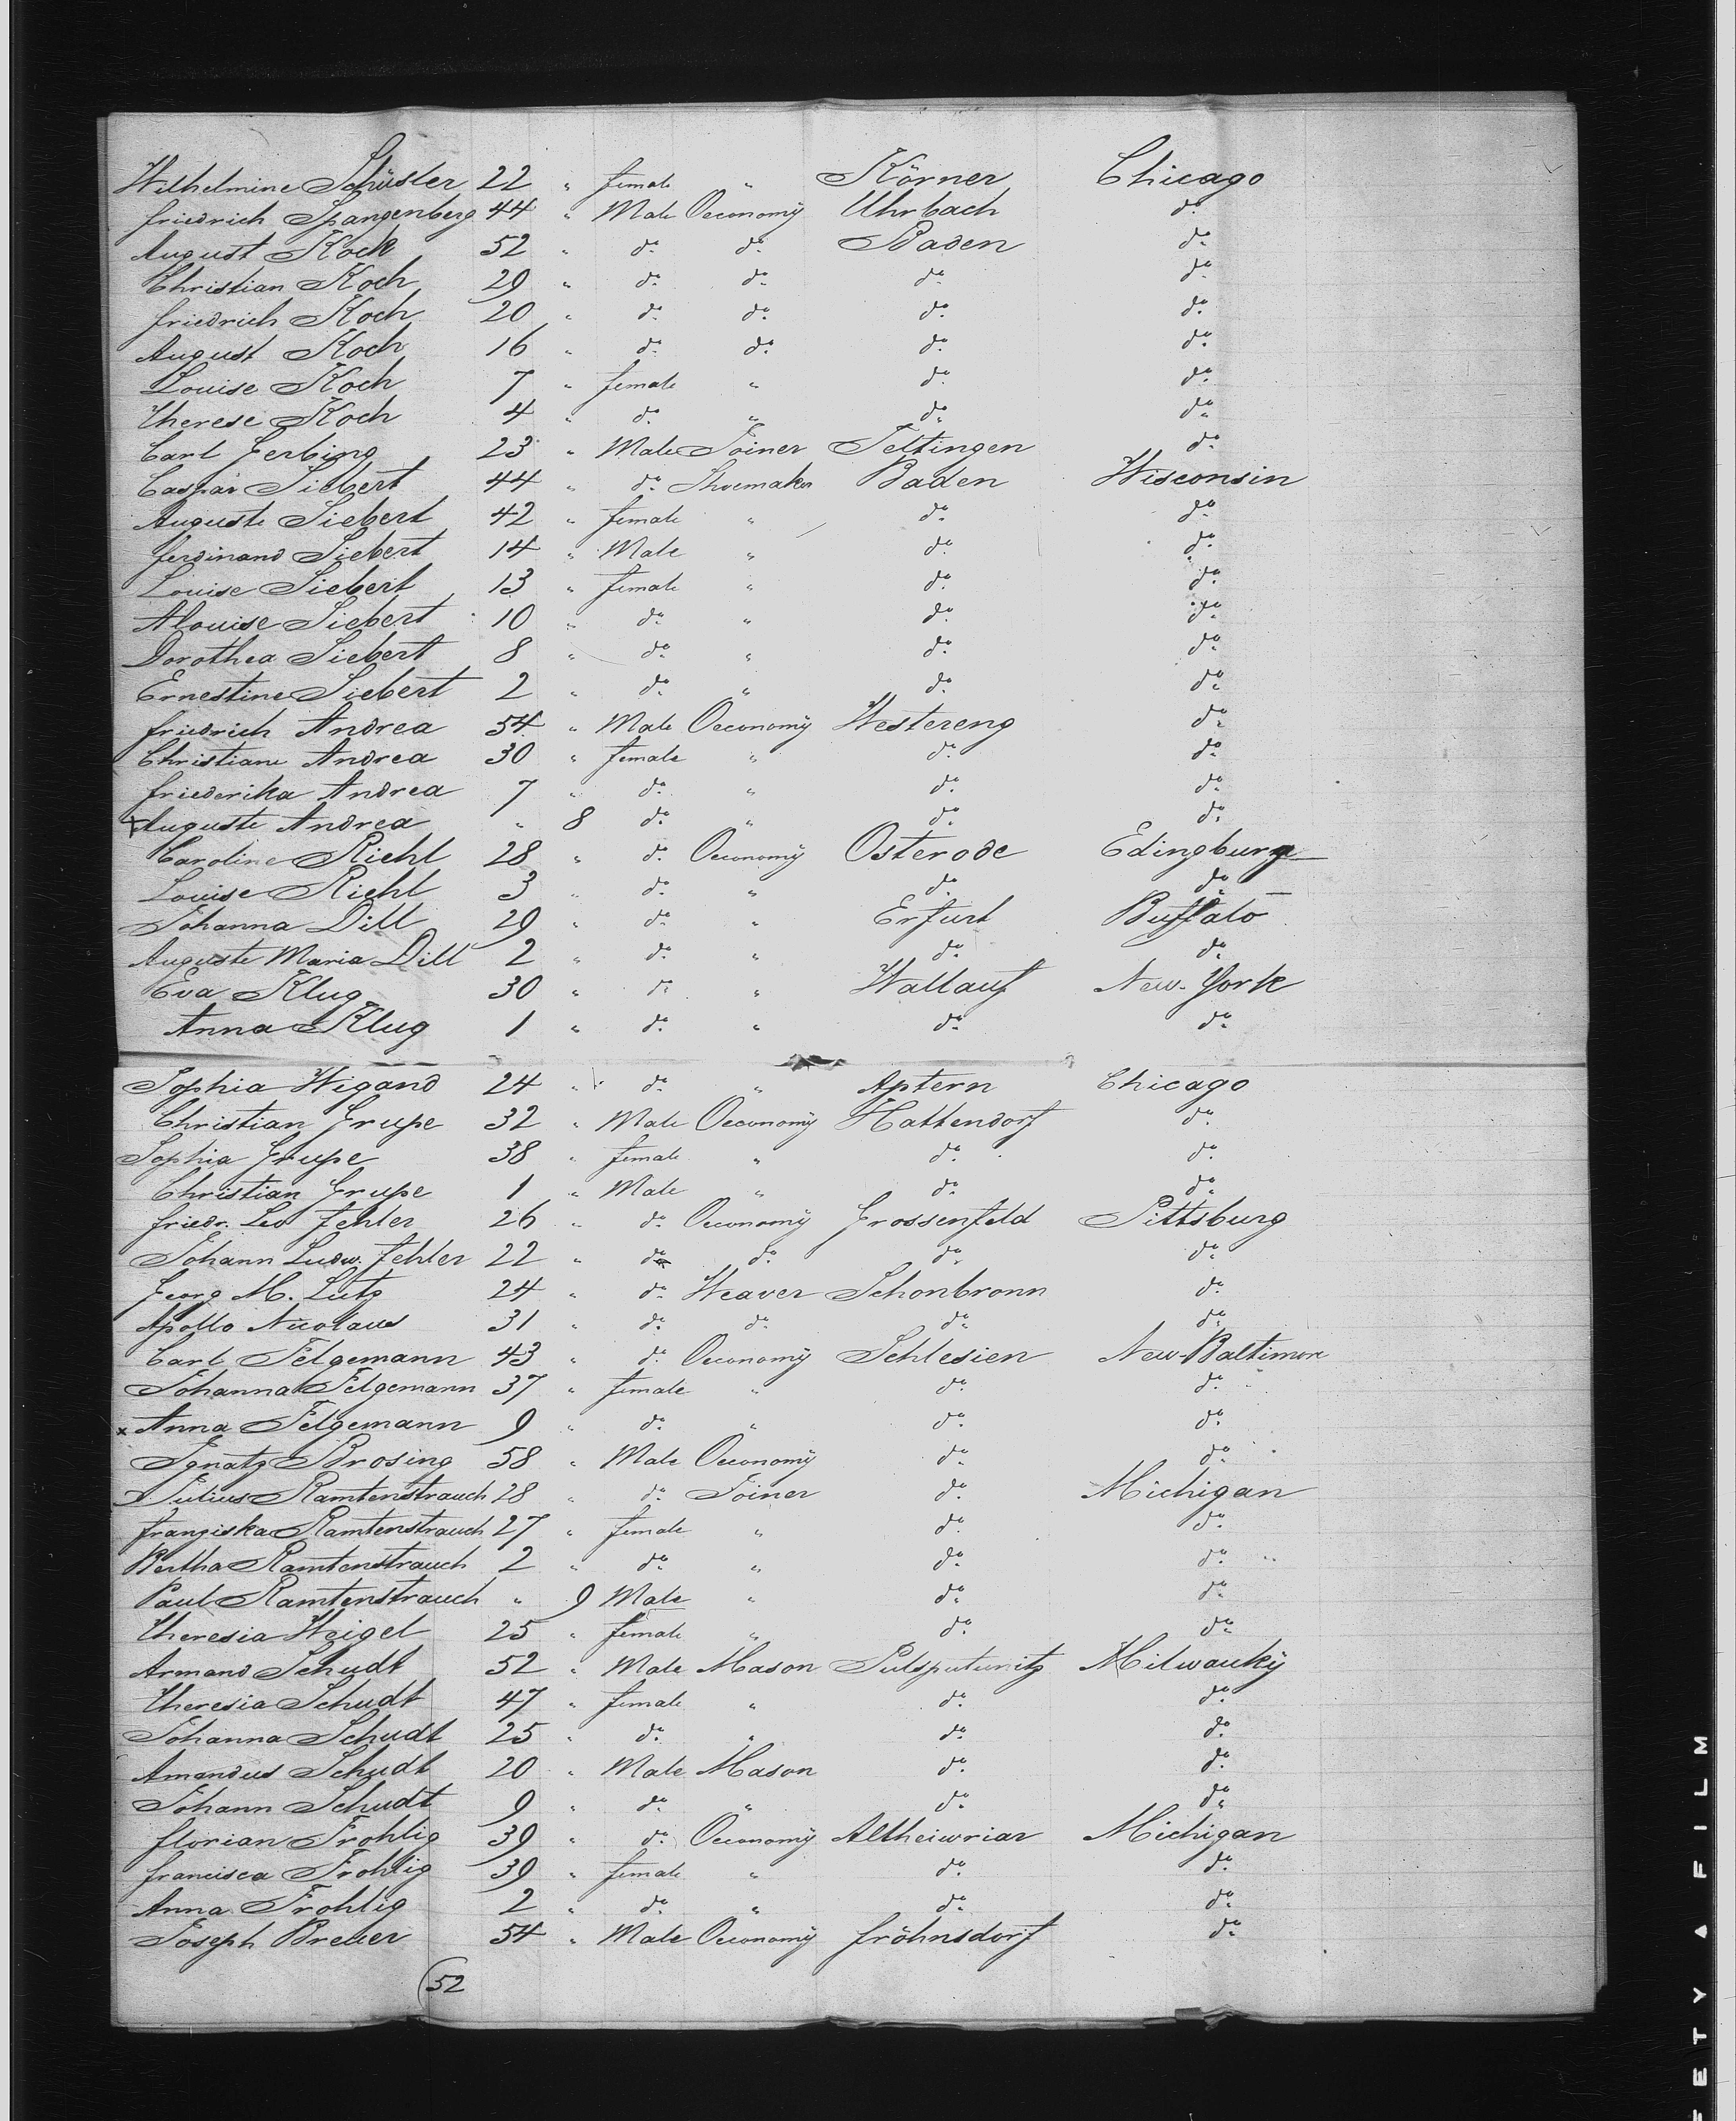 Wilhelmine Schüsler 22 " female " Körner Chicago
Friedrich Spangenberg 44 " Male Oeconomÿ Uhrbach do
August Koch 52 " do do Baden do
Christian Koch 29 " do do do do
Friedrich Koch 20 " do do do do
August Koch 16 " do do do do
Louise Koch 7 " female " do do
Therese Koch 4 " do " do do
Carl Gerbing 23 " Male Joiner Teltingen do
Caspar Siebert 44 " do Shoemaker Baden Wisconsin
Auguste Siebert 42 " female " do do
Ferdinand Siebert 14 " Male " do do
Louise Siebert 13 " female " do do
Alouise Siebert 10 " do " do do
Dorothea Siebert 8 " do " do do
Ernestine Siebert 2 " do " do do
Friedrich Andrea 54 " Male Oeconomÿ Westereng do
Christiane Andrea 30 " female " do do
Friederika Andrea 7 " do " do do
x Auguste Andrea " 8 do " do do
Caroline Riehl 28 " do Oeconomÿ Osterode Edingburg
Louise Riehl 3 " do " do do
Johanna Dill 29 " do " Erfurt Buffalo
Auguste Maria Dill 2 " do " do do
Eva Klug 30 " do " Wallauf New-York
Anna Klug 1 " do " do do
Sophia Wigand 24 " do " Aptern Chicago
Christian Grupe 32 " Male Oeconomÿ Hattendorf do
Sophia Grupe 38 " female " do do
Christian Grupe 1 " Male " do do
Friedr. Leo Fehler 26 " do Oeconomÿ Grossenfeld Pittsburg
Johann Ludw. Fehler 22 " do do do do
Georg M. Lutz 24 " do Weaver Schonbronn do
Apollo Nicolaus 31 " do do do do
Carl Telgemann 43 " do Oeconomÿ Schlesien New-Baltimore
Johanna Telgemann 37 " female " do do
x Anna Telgemann 9 " do " do do
Ignatz Brosing 58 " Male Oeconomÿ do do
Julius Ramtenstrauch 28 " do Joiner do Michigan
Franziska Ramtenstrauch 27 " female " do do
Bertha Ramtenstrauch 2 " do " do do
Paul Ramtenstrauch " 9 Male " do do
Theresia Weigel 25 " female " do do
Armand Schudt 52 " Male Mason Milwaukÿ
Theresia Schudt 47 " female " do do
Johanna Schudt 25 " do " do do
Amandus Schudt 20 " Male Mason do do
Johann Schudt 9 " do " do do
Florian Frohlig 39 " do Oeconomÿ Altheiwriar Michigan
Francisca Frohlig 39 " female " do do
Anna Frohlig 2 " do " do do
Joseph Breuer 54 " Male Oeconomÿ Fröhnsdorf do
52
FETY ▲ FILM